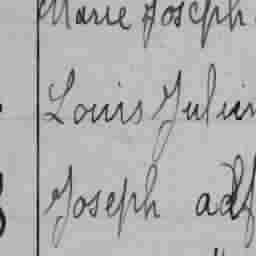 Marie Joseph
Louis Julien
Joseph adf